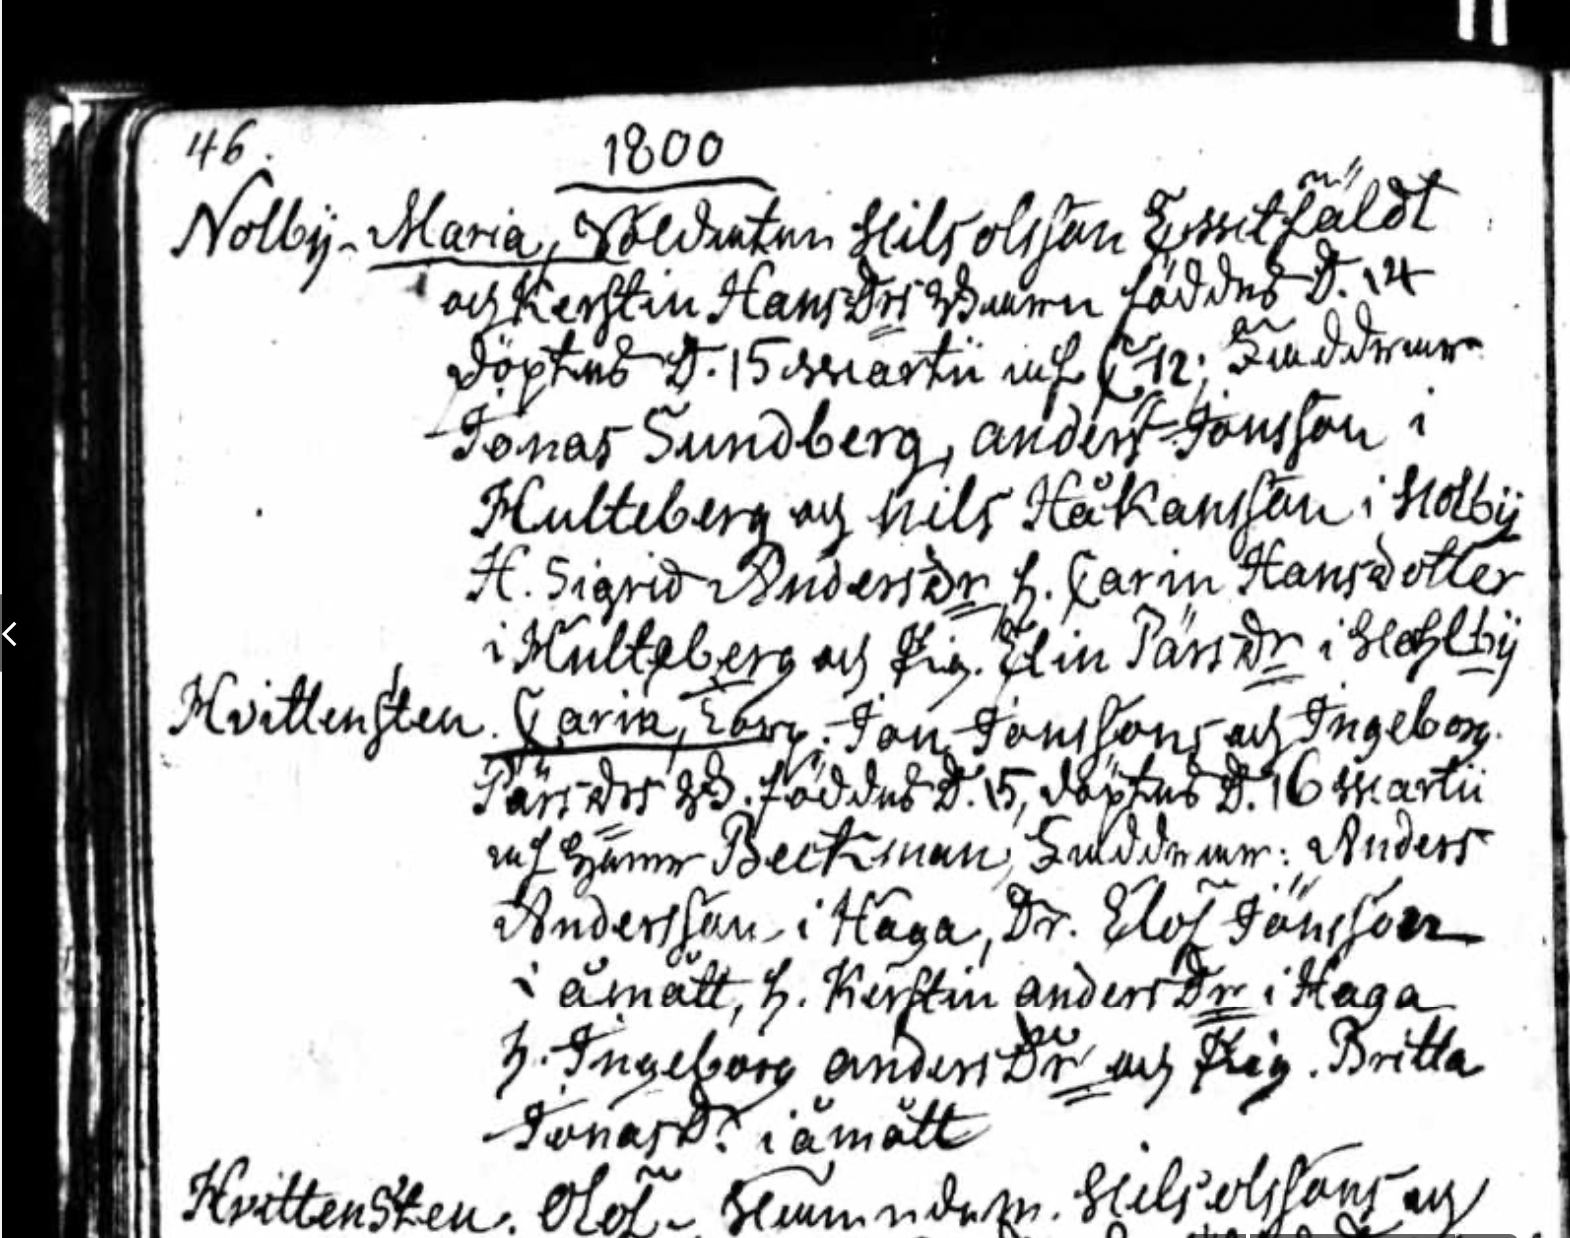 46.
1800
Nolbÿ- Maria, Soldaten Nils olsson
och Kerstin Hans Drs Barn föddes D. 14
döptes D. 15 Martii af C 12; Faddrarne
Jonas Sundberg, anders Jonsson i
Hulteberg och Nils Håkansson i Nolbÿ
H. Sigrid Anders Dr, h. Carin Hansdotter
i Hulteberg och Pig. Elin Pärs Dr i
Hvittensten. Carin, Jon Jonssons och Ingeborg
Pärs Drs B. föddes D. 15, döptes D. 16 Martii
af Beckman, Faddrarne: Anders
Andersson i Haga, Dr. Elof Jönsson
i åmått, h. Kerstin anders Dr i Haga
h. Ingeborg anders Dr och Pig. Britta
Jonas Dr i åmått
Hvittensten. Olof - Nils olssons och